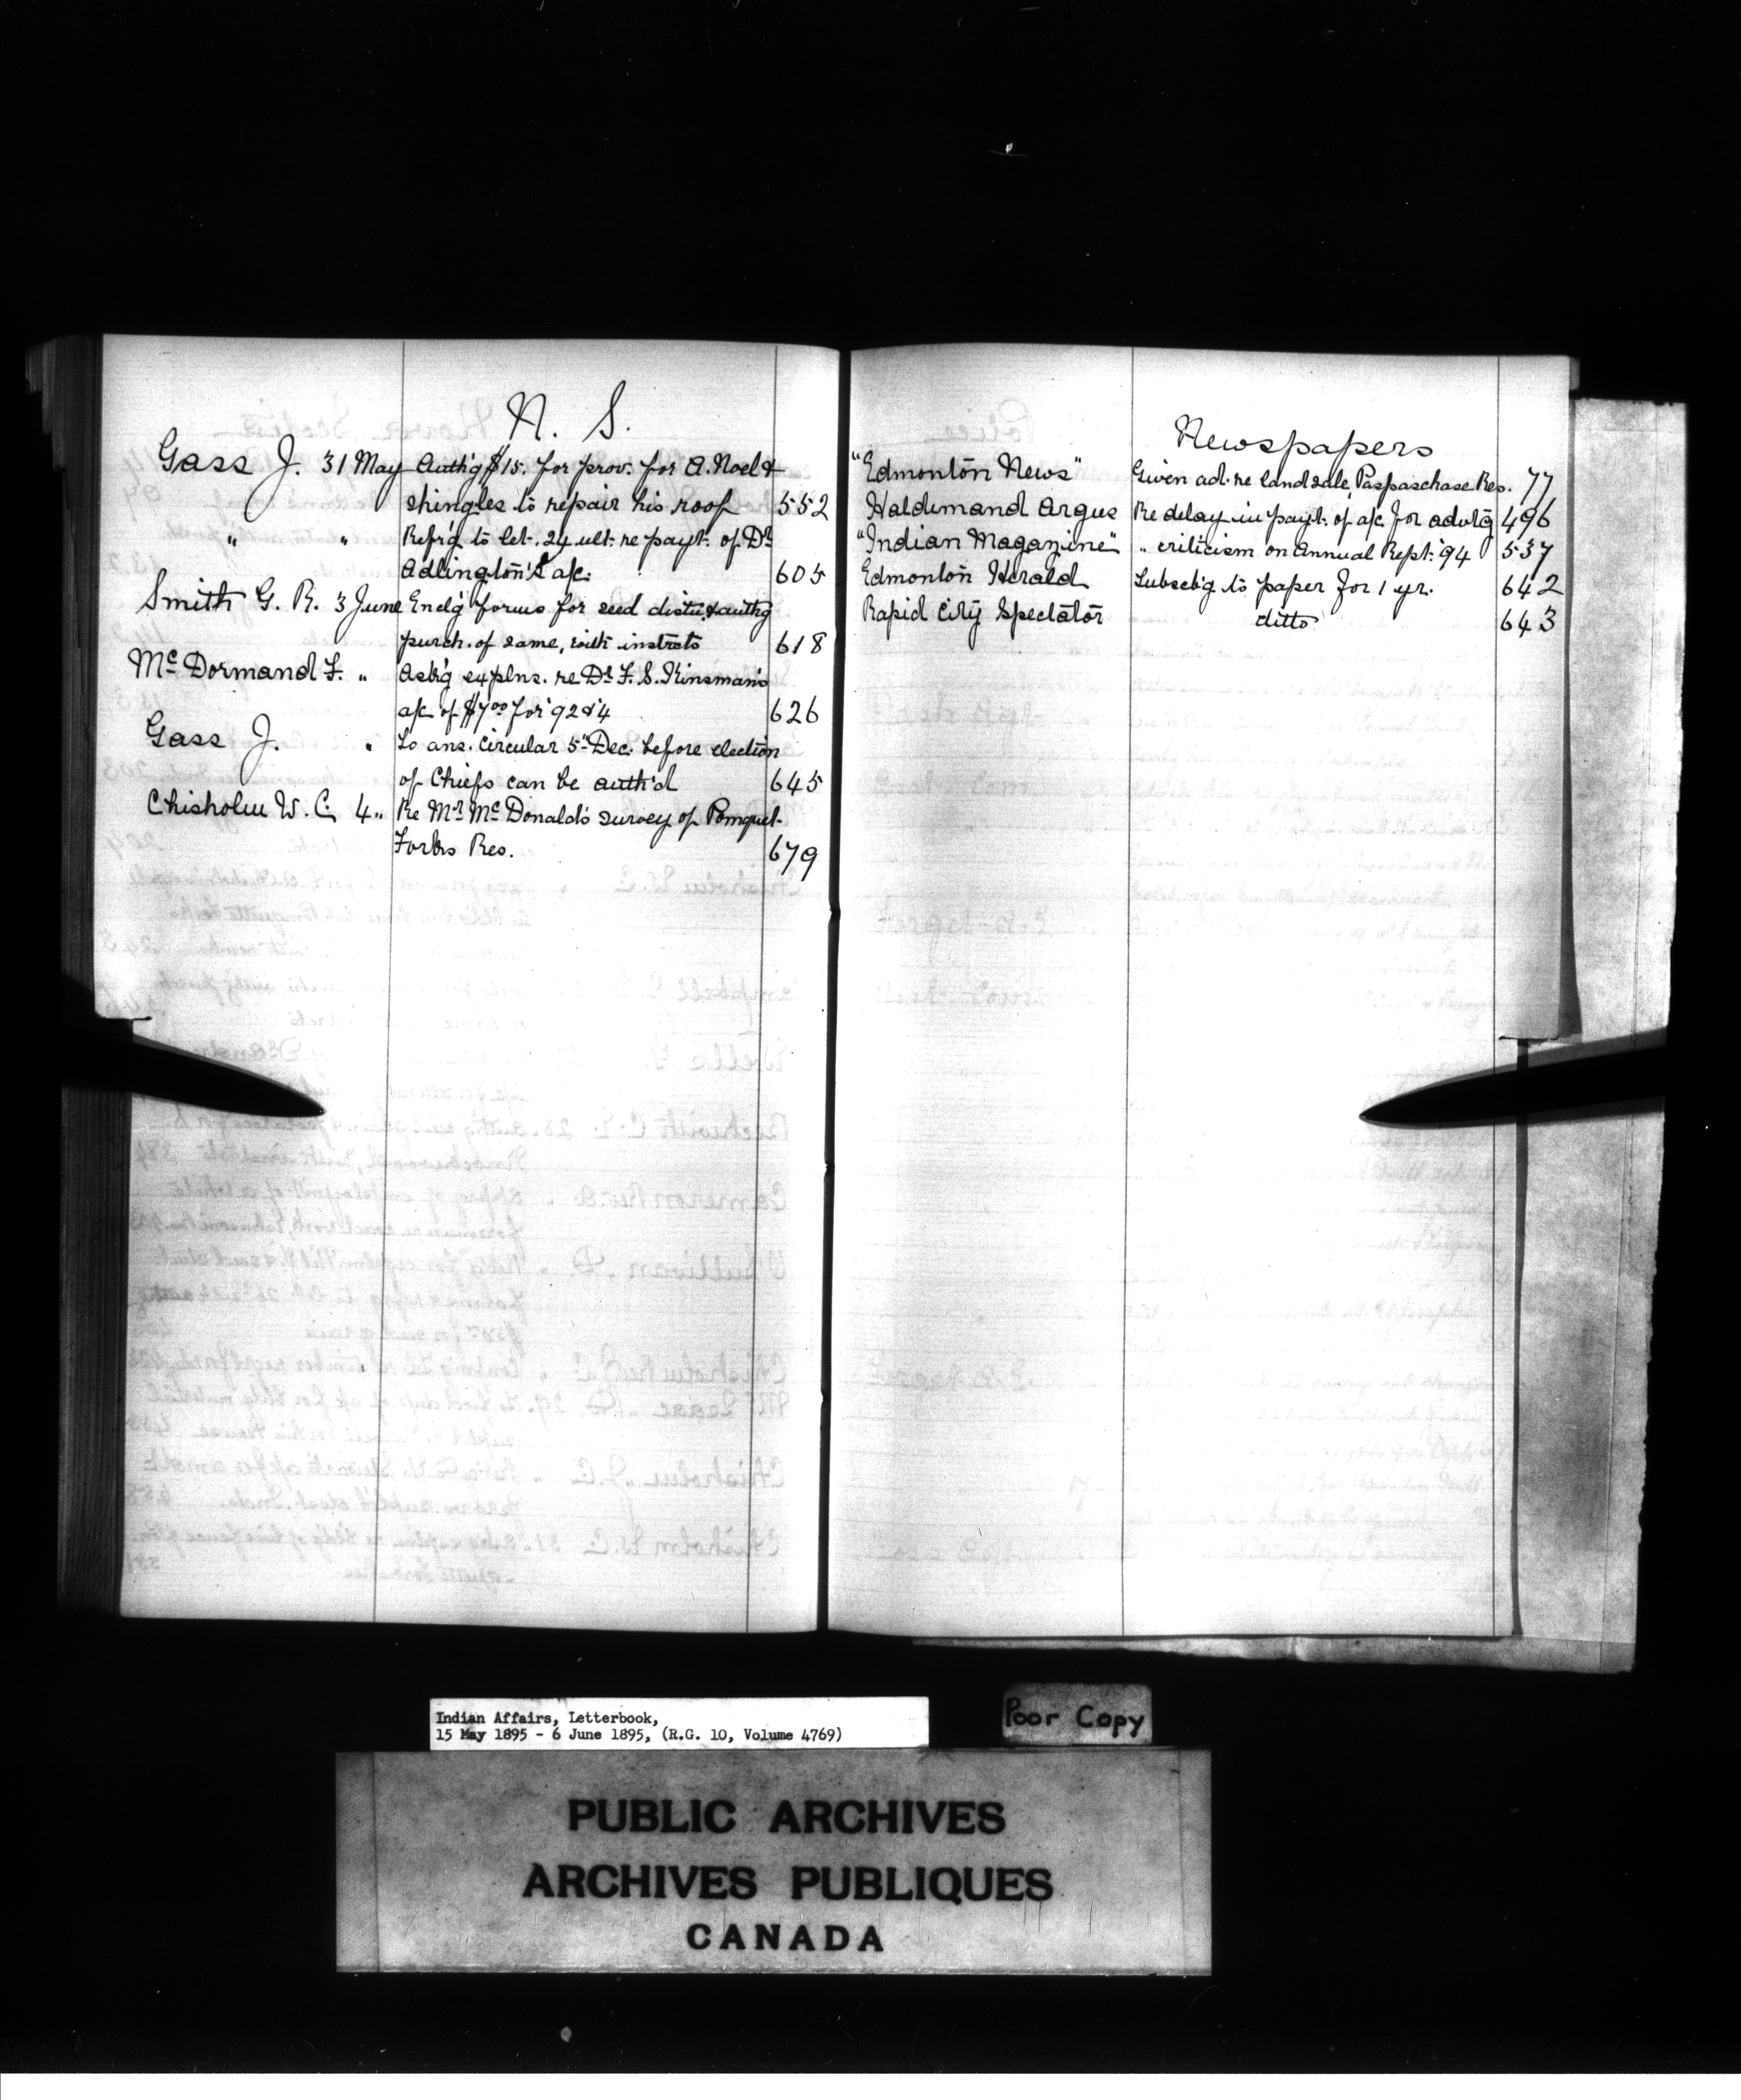 N. S.
Gass J. 31 May Auth'g $15. for prov. for A. Noel &
shingles to repair his roof 552
" " Ref'g to let. 24 ult. re payt. of Dr
Adlington's a/c. 605
Smith G. R. 3 June Encl'g forms for seed distn. & auth'g
purch. of same, with instrcts 618
Mc Dormand F. " Ask'g explns. re Dr F. S. Kinsman's
a/c of $7 00 for '92 & 4 626
Gass J. " To ans. circular 5" Dec. before election
of Chiefs can be auth'd 645
Chisholm W. C. 4 " Re Mr McDonald's survey of Pomquet
Forks Res. 679
Newspapers
"Edmonton News" Given ad. re land sale, Paspaschase Res. 77
Haldimand Argus Re delay in payt. of a/c for advt'g 496
"Indian Magazine" " criticism on Annual Rept. '94 537
Edmonton Herald Subscb'g to paper for 1 yr. 642
Rapid City Spectator ditto 643
Indian Affairs, Letterbook,
15 May 1895 - 6 June 1895, (R.G. 10, Volume 4769)
Poor Copy
PUBLIC ARCHIVES
ARCHIVES PUBLIQUES
CANADA